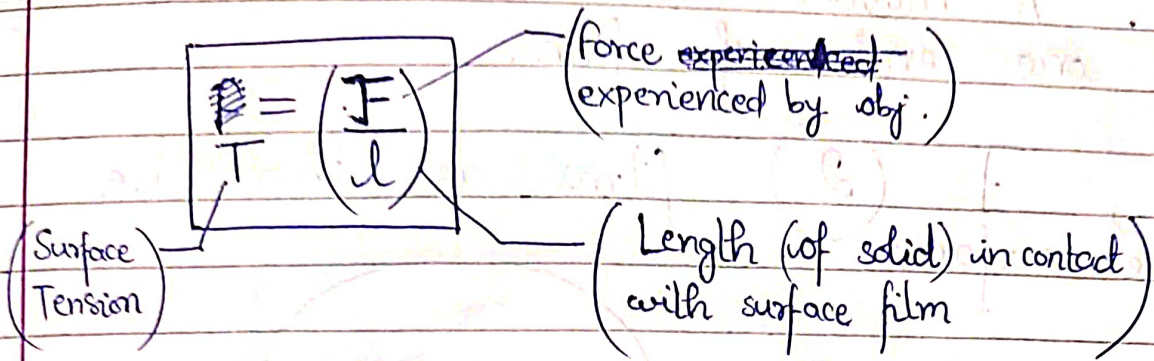 (Force experienced
experienced by obj.)
T = (F/l)
(Surface
Tension)
(Length (of solid) in contact
with surface film)